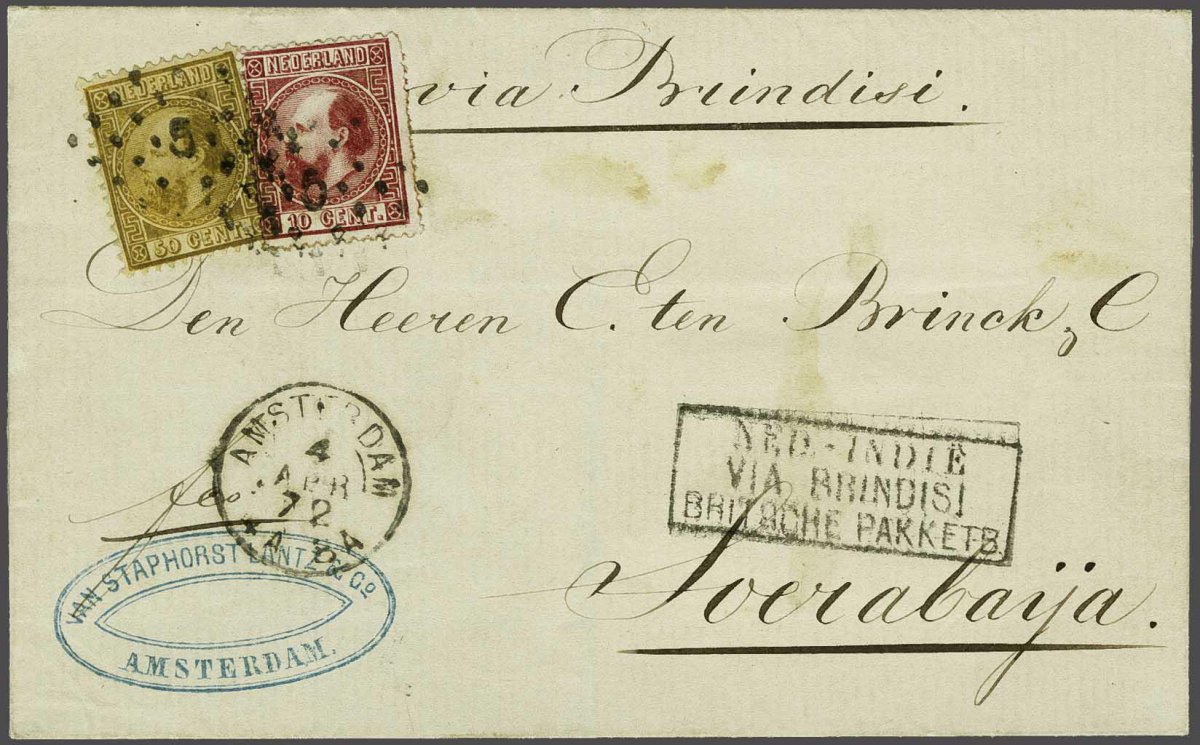 via Brindisi.
NEDERLAND
5
50 CENT.
NEDERLAND
5
10 CENT.
Den Heeren C. ten Brinck & C
AMSTERDAM
4
APR
72
NED.-INDIË
VIA BRINDISI
BRITSCHE PAKKETB.
fco
VAN STAPHORST LANTZ & Co
AMSTERDAM.
Soerabaija.